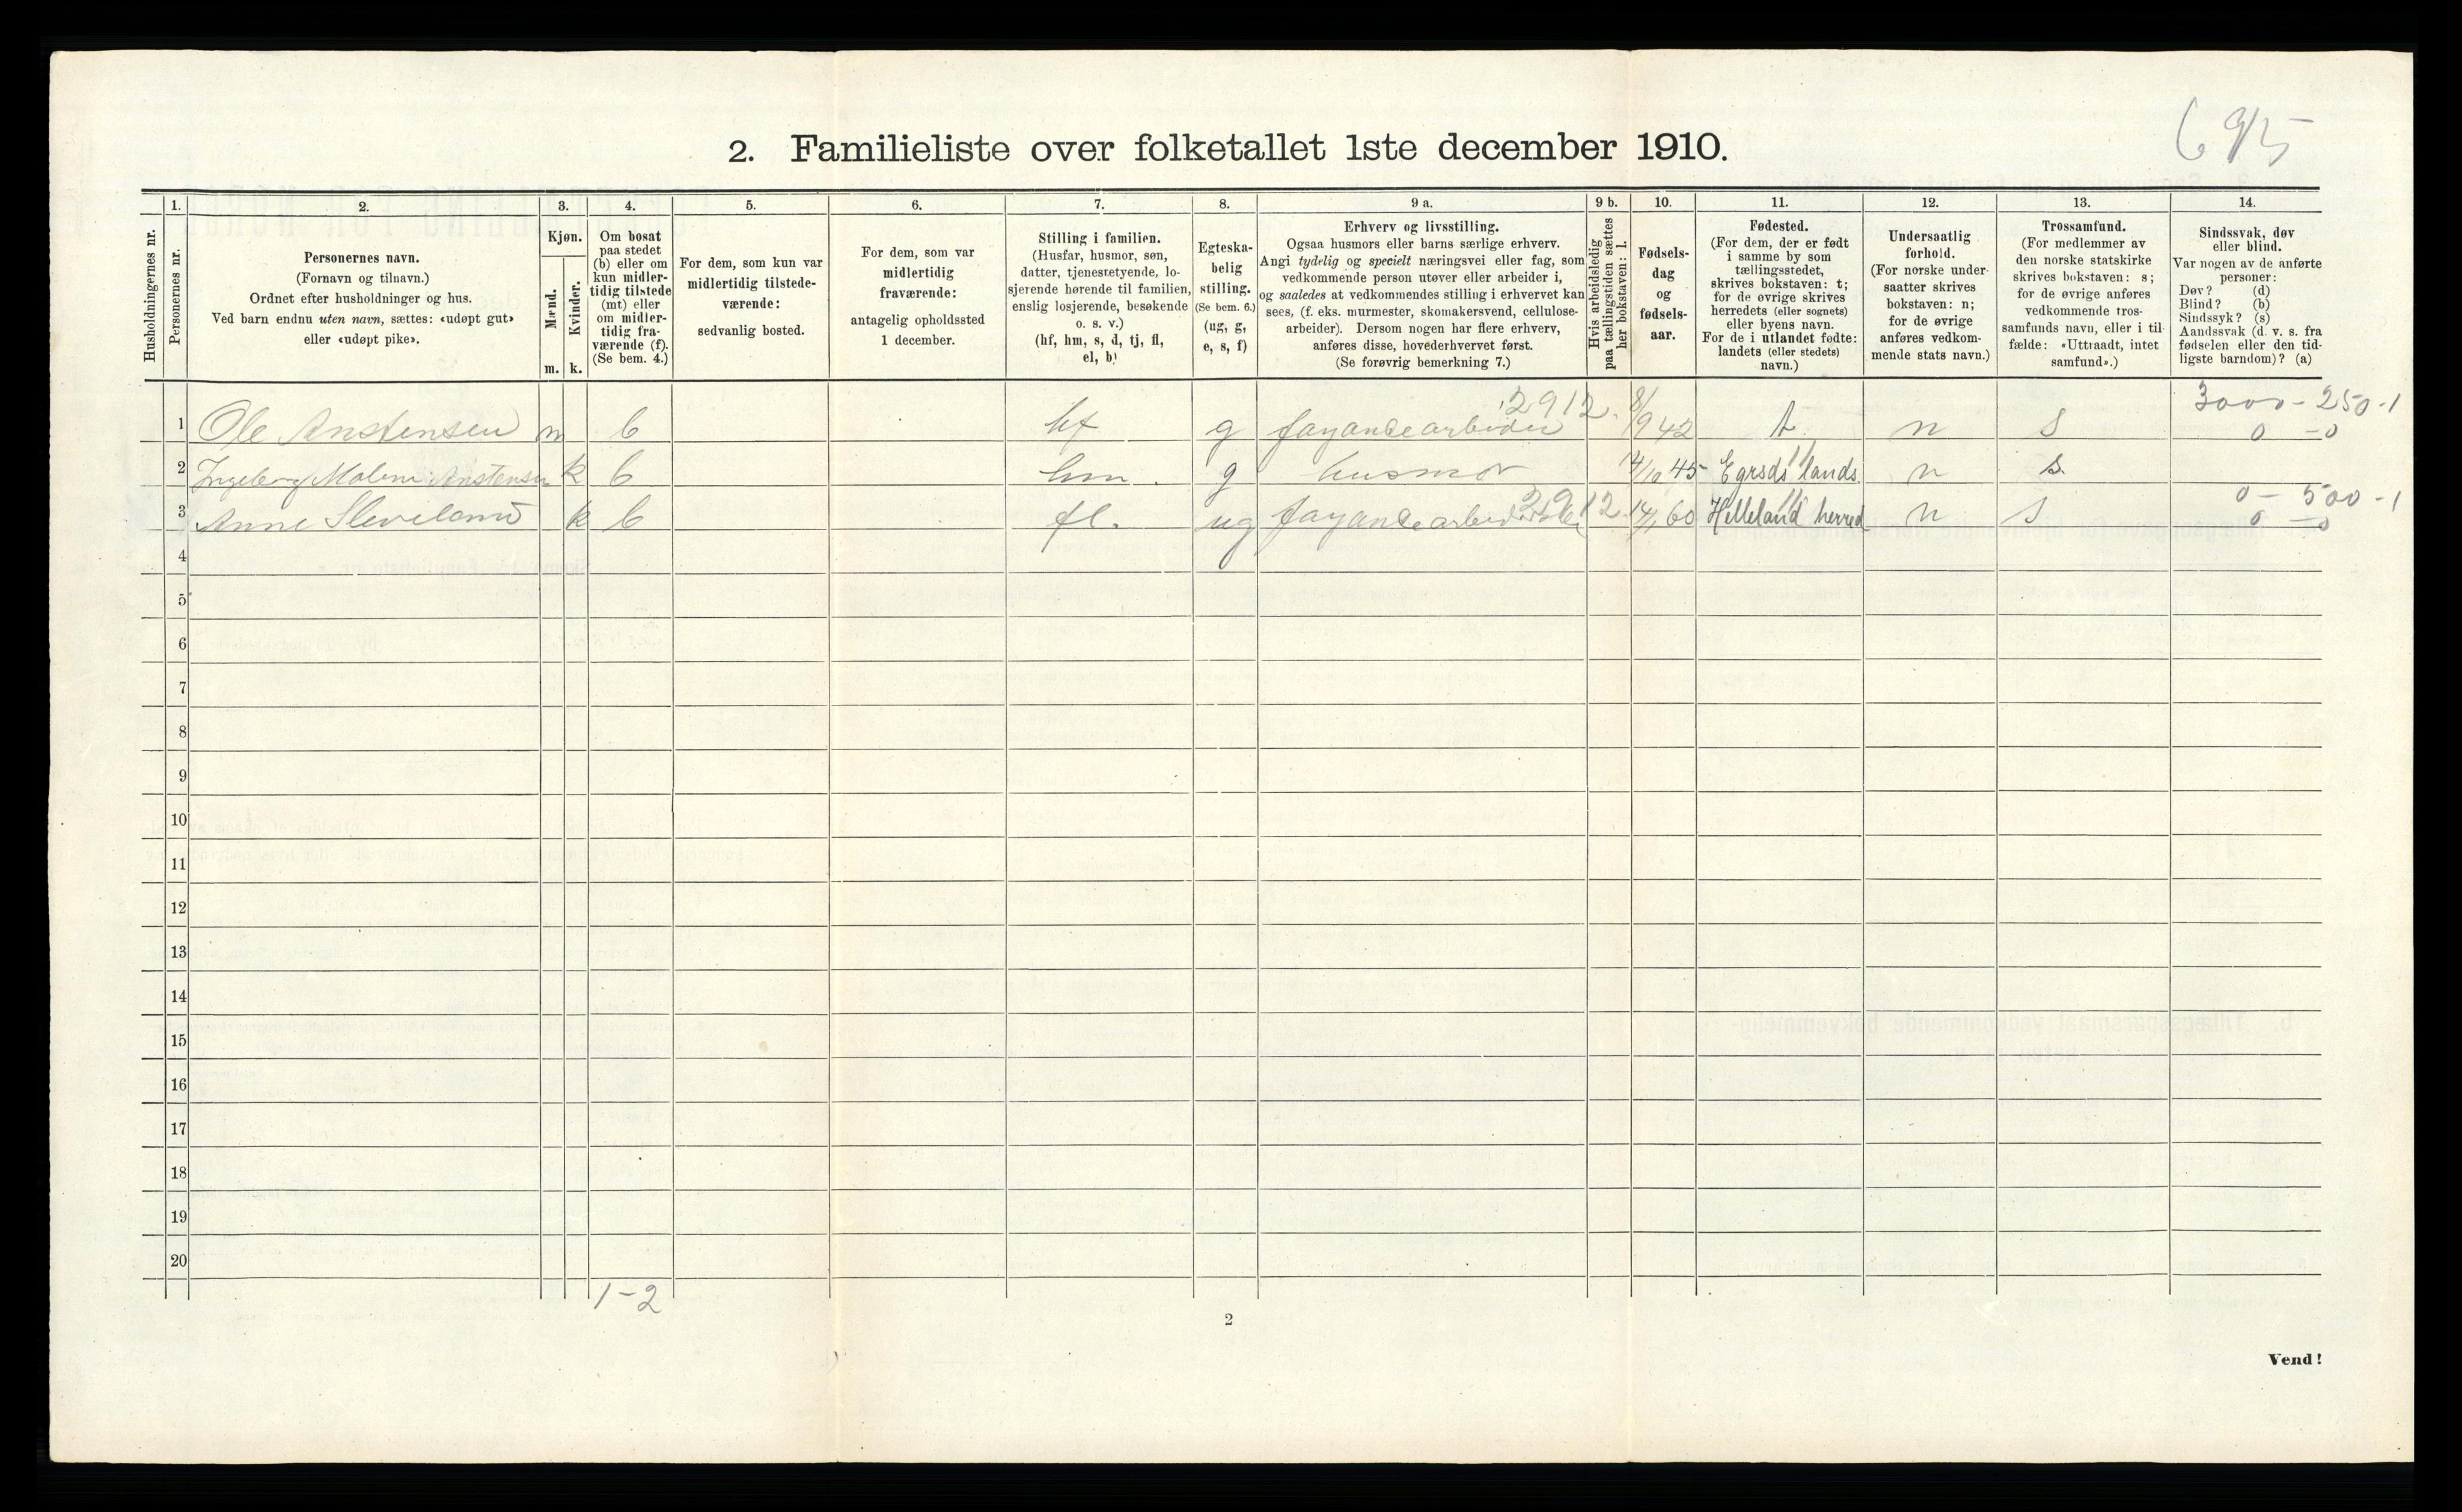 2. Familieliste over folketallet 1ste december 1910.
Husholdningernes nr.
1.
Personernes nr.
2.
Personernes navn.
(Fornavn og tilnavn.)
Ordnet efter husholdninger og hus.
Ved barn endnu uten navn, sættes: «udøpt gut»
eller «udøpt pike».
3.
Kjøn.
Mænd.
Kvinder.
m. k.
4.
Om bosat
paa stedet
(b) eller om
kun midler-
tidig tilstede
(mt) eller
om midler-
tidig fra-
værende (f).
(Se bem. 4.)
5.
For dem, som kun var
midlertidig tilstede-
værende:
sedvanlig bosted.
6.
For dem, som var
midlertidig
fraværende:
antagelig opholdssted
1 december.
7.
Stilling i familien.
(Husfar, husmor, søn,
datter, tjenestetyende, lo-
sjerende hørende til familien,
enslig losjerende, besøkende
o. s. v.)
(hf, hm, s, d, tj, fl,
el, b)
8.
Egteska-
belig
stilling.
(Se bem. 6.)
(ug, g,
e, s, f)
9 a.
Erhverv og livsstilling.
Ogsaa husmors eller barns særlige erhverv.
Angi tydelig og specielt næringsvei eller fag, som
vedkommende person utøver eller arbeider i,
og saaledes at vedkommendes stilling i erhvervet kan
sees, (f. eks. murmester, skomakersvend, cellulose-
arbeider). Dersom nogen har flere erhverv,
anføres disse, hovederhvervet først.
(Se forøvrig bemerkning 7.)
9 b.
Hvis arbeidsledig
paa tællingstiden sættes
her bokstaven: l.
10.
Fødsels-
dag
og
fødsels-
aar.
11.
Fødested.
(For dem, der er født
i samme by som
tællingsstedet,
skrives bokstaven: t;
for de øvrige skrives
herredets (eller sognets)
eller byens navn.
For de i utlandet fødte:
landets (eller stedets)
navn.)
12.
Undersaatlig
forhold.
(For norske under-
saatter skrives
bokstaven: n;
for de øvrige
anføres vedkom-
mende stats navn.)
13.
Trossamfund.
(For medlemmer av
den norske statskirke
skrives bokstaven: s;
for de øvrige anføres
vedkommende tros-
samfunds navn, eller i til-
fælde: «Uttraadt, intet
samfund».)
14.
Sindssvak, døv
eller blind.
Var nogen av de anførte
personer:
Døv? (d)
Blind? (b)
Sindssyk? (s)
Aandssvak (d. v. s. fra
fødselen eller den tid-
ligste barndom)? (a)
2912. 3000 - 250 - 1
1 Ole Anstensen m b hf g fayancearbeider 8/9 42 t n s 0 - 0
2 Ingeborg Malene Anstensen k b hm. g husmor 14/10 45 Egrsds lands. n s.
2912 0 - 500 - 1
3 Anne Sleveland k b fl. ug 14/1 60 Helleland herred n s 0 - 0
4
5
6
7
8
9
10
11
12
13
14
15
16
17
18
19
20
1 - 2
2
Vend!